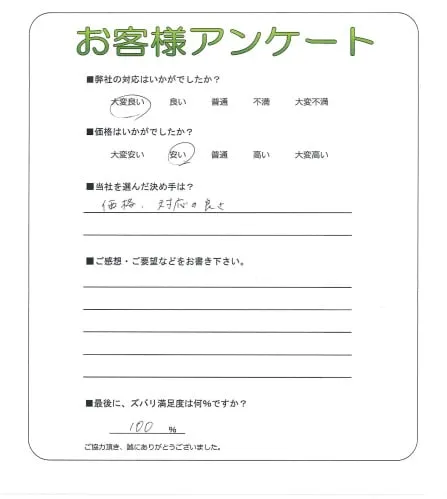 お客様アンケート
■弊社の対応はいかがでしたか？
大変良い 良い 普通 不満 大変不満
■価格はいかがでしたか？
大変安い 安い 普通 高い 大変高い
■当社を選んだ決め手は？
価格、対応の良さ
■ご感想・ご要望などをお書き下さい。
■最後に、ズバリ満足度は何%ですか？
100 %
ご協力頂き、誠にありがとうございました。